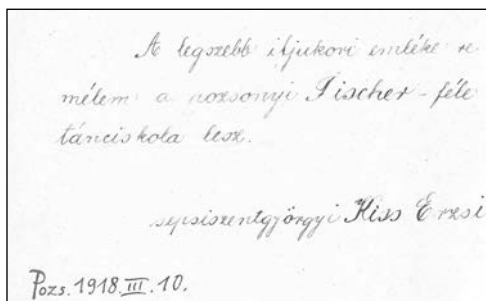 A legszebb ifjukori emléke re
mélem a pozsonyi Fischer-féle
tánciskola lesz.
sepsiszentgyörgyi Kiss Erzsi
Pozs. 1918. III. 10.